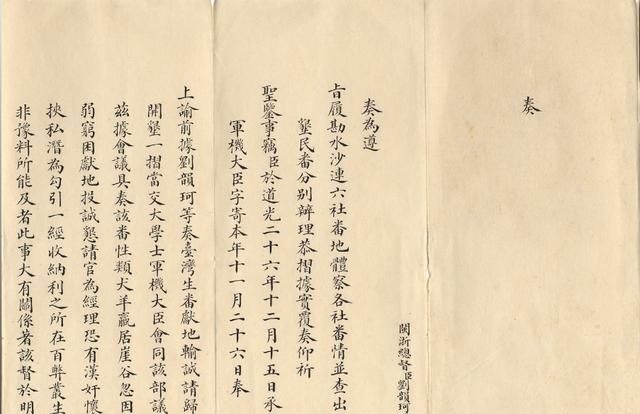 奏
閩浙總督臣劉韻珂
奏為遵
旨履勘水沙連六社番地體察各社番情並查出
墾民番分别辦理恭摺據實覆奏仰祈
聖鑒事竊臣於道光二十六年十二月十五日承
軍機大臣字寄本年十一月二十六日奉
上諭前據劉韻珂等奏臺灣生番獻地輸誠請歸
開墾一摺當交大學士軍機大臣會同該部議
茲據會議具奏該番性類犬羊羸居崖谷忽因
弱窮困獻地投誠懇請官為經理恐有漢奸懷
挾私潛為勾引一經收納利之所在百弊叢生
非豫料所能及者此事大有關係著該督於明